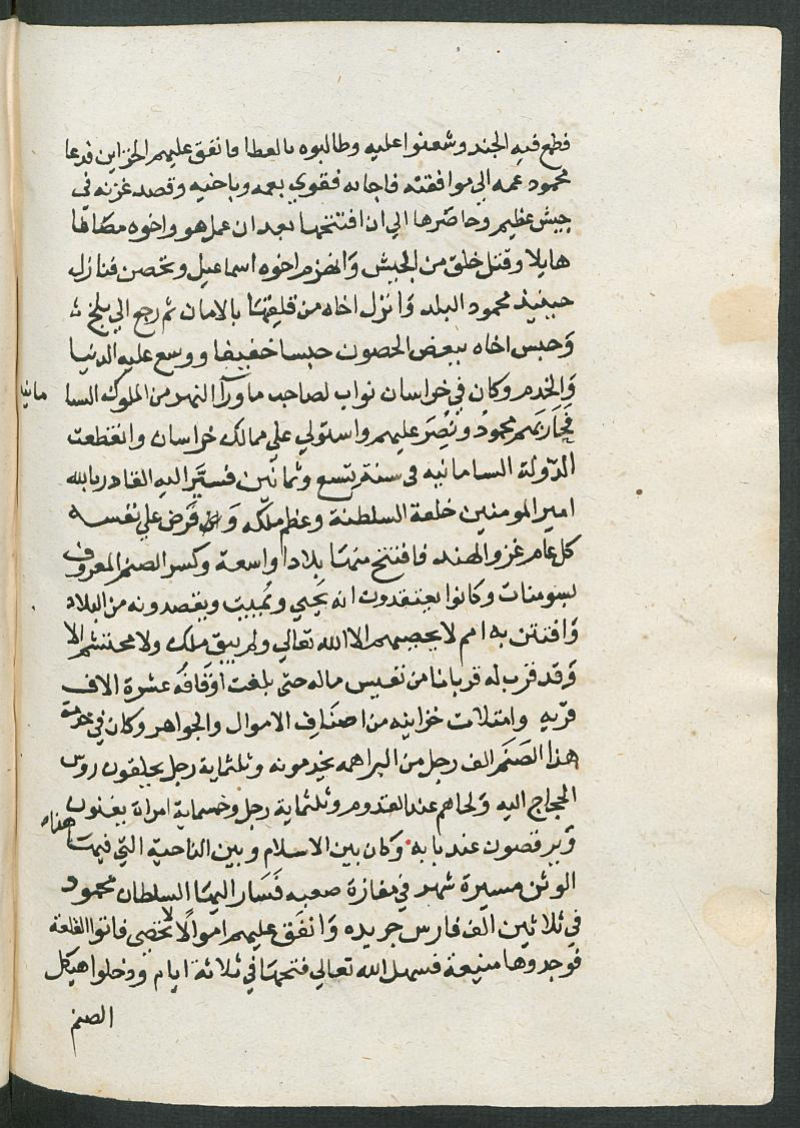 فطمع فيه الجند وشغبوا عليه وطالبوه بالعطا فانفق عليهم الخزاين فدعا
محمود عمه الي موافقته فاجابه فقوي بعمه وباخيه وقصد غزنه في
جيش عظيم وحاصرها الي ان افتتحها بعد ان عمل هو واخوه مصافا
هايلا وقتل خلق من الجيش وانهزم اخوه اسماعيل وتحصن فنازل
حينيذ محمود البلد وانزل اخاه من قلعتها بالامان ثم رجع الي بلخ
وحبس اخاه ببعض الحصون حبسا خفيفا ووسع عليه الدنيا
والخدم وكان في خراسان نواب لصاحب ماورآ النهر من الملوك السا
مانيه
فحاربهم محمود ونصر عليهم واستولي علي ممالك خراسان وانقطعت
الدولة السامانيه في سنة تسع وثمانين فسير اليه القادر بالله
امير المومنين خلعة السلطنة وعظم ملكه وفرض علي نفسه
كل عام غزو الهند فافتتح منها بلادا واسعة وكسر الصنم المعروف
بسومنات وكانوا يعتقدون انه يحيي ويميت ويقصدونه من البلاد
وافتتن به امم لا يحصيهم الا الله تعالي ولم يبق ملك ولا محتشم الا
وقد قرب له قربانا من نفيس ماله حتى بلغت اوقافه عشرة الاف
قريه وامتلات خزاينه من اصناف الاموال والجواهر وكان في خدمة
هذا الصنم الف رجل من البراهمه يخدمونه وثلثماية رجل يحلقون روس
الحجاج اليه ولحاهم عند القدوم وثلثماية رجل وخمسماية امراة يغنون
ويرقصون عند بابه وكان بين الاسلام وبين الناحيه التي فيها هذا
الوثن مسيرة شهر في مفازة صعبه فسار اليها السلطان محمود
في ثلاثين الف فارس جريده وانفق عليهم اموالا لا تحصى فاتوا القلعة
فوجدوها منيعة فسهل الله تعالي فتحها في ثلاثة ايام ودخلوا هيكل
الصنم